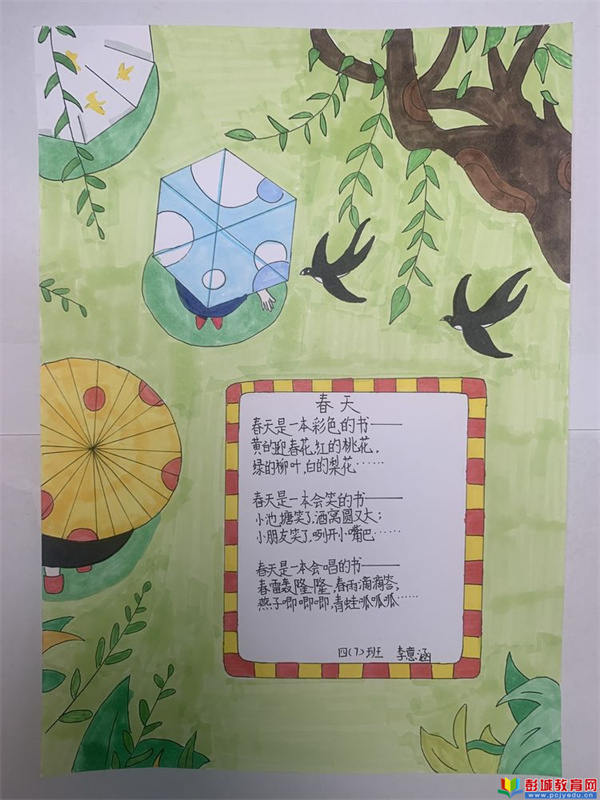 春天
春天是一本彩色的书——
黄的迎春花,红的桃花,
绿的柳叶,白的梨花……
春天是一本会笑的书——
小池塘笑了,酒窝圆又大;
小朋友笑了,咧开小嘴巴……
春天是一本会唱的书——
春雷轰隆隆,春雨滴滴答,
燕子唧唧唧,青蛙呱呱呱……
四(7)班 李意涵
彭城教育网
www.pcjyedu.cn